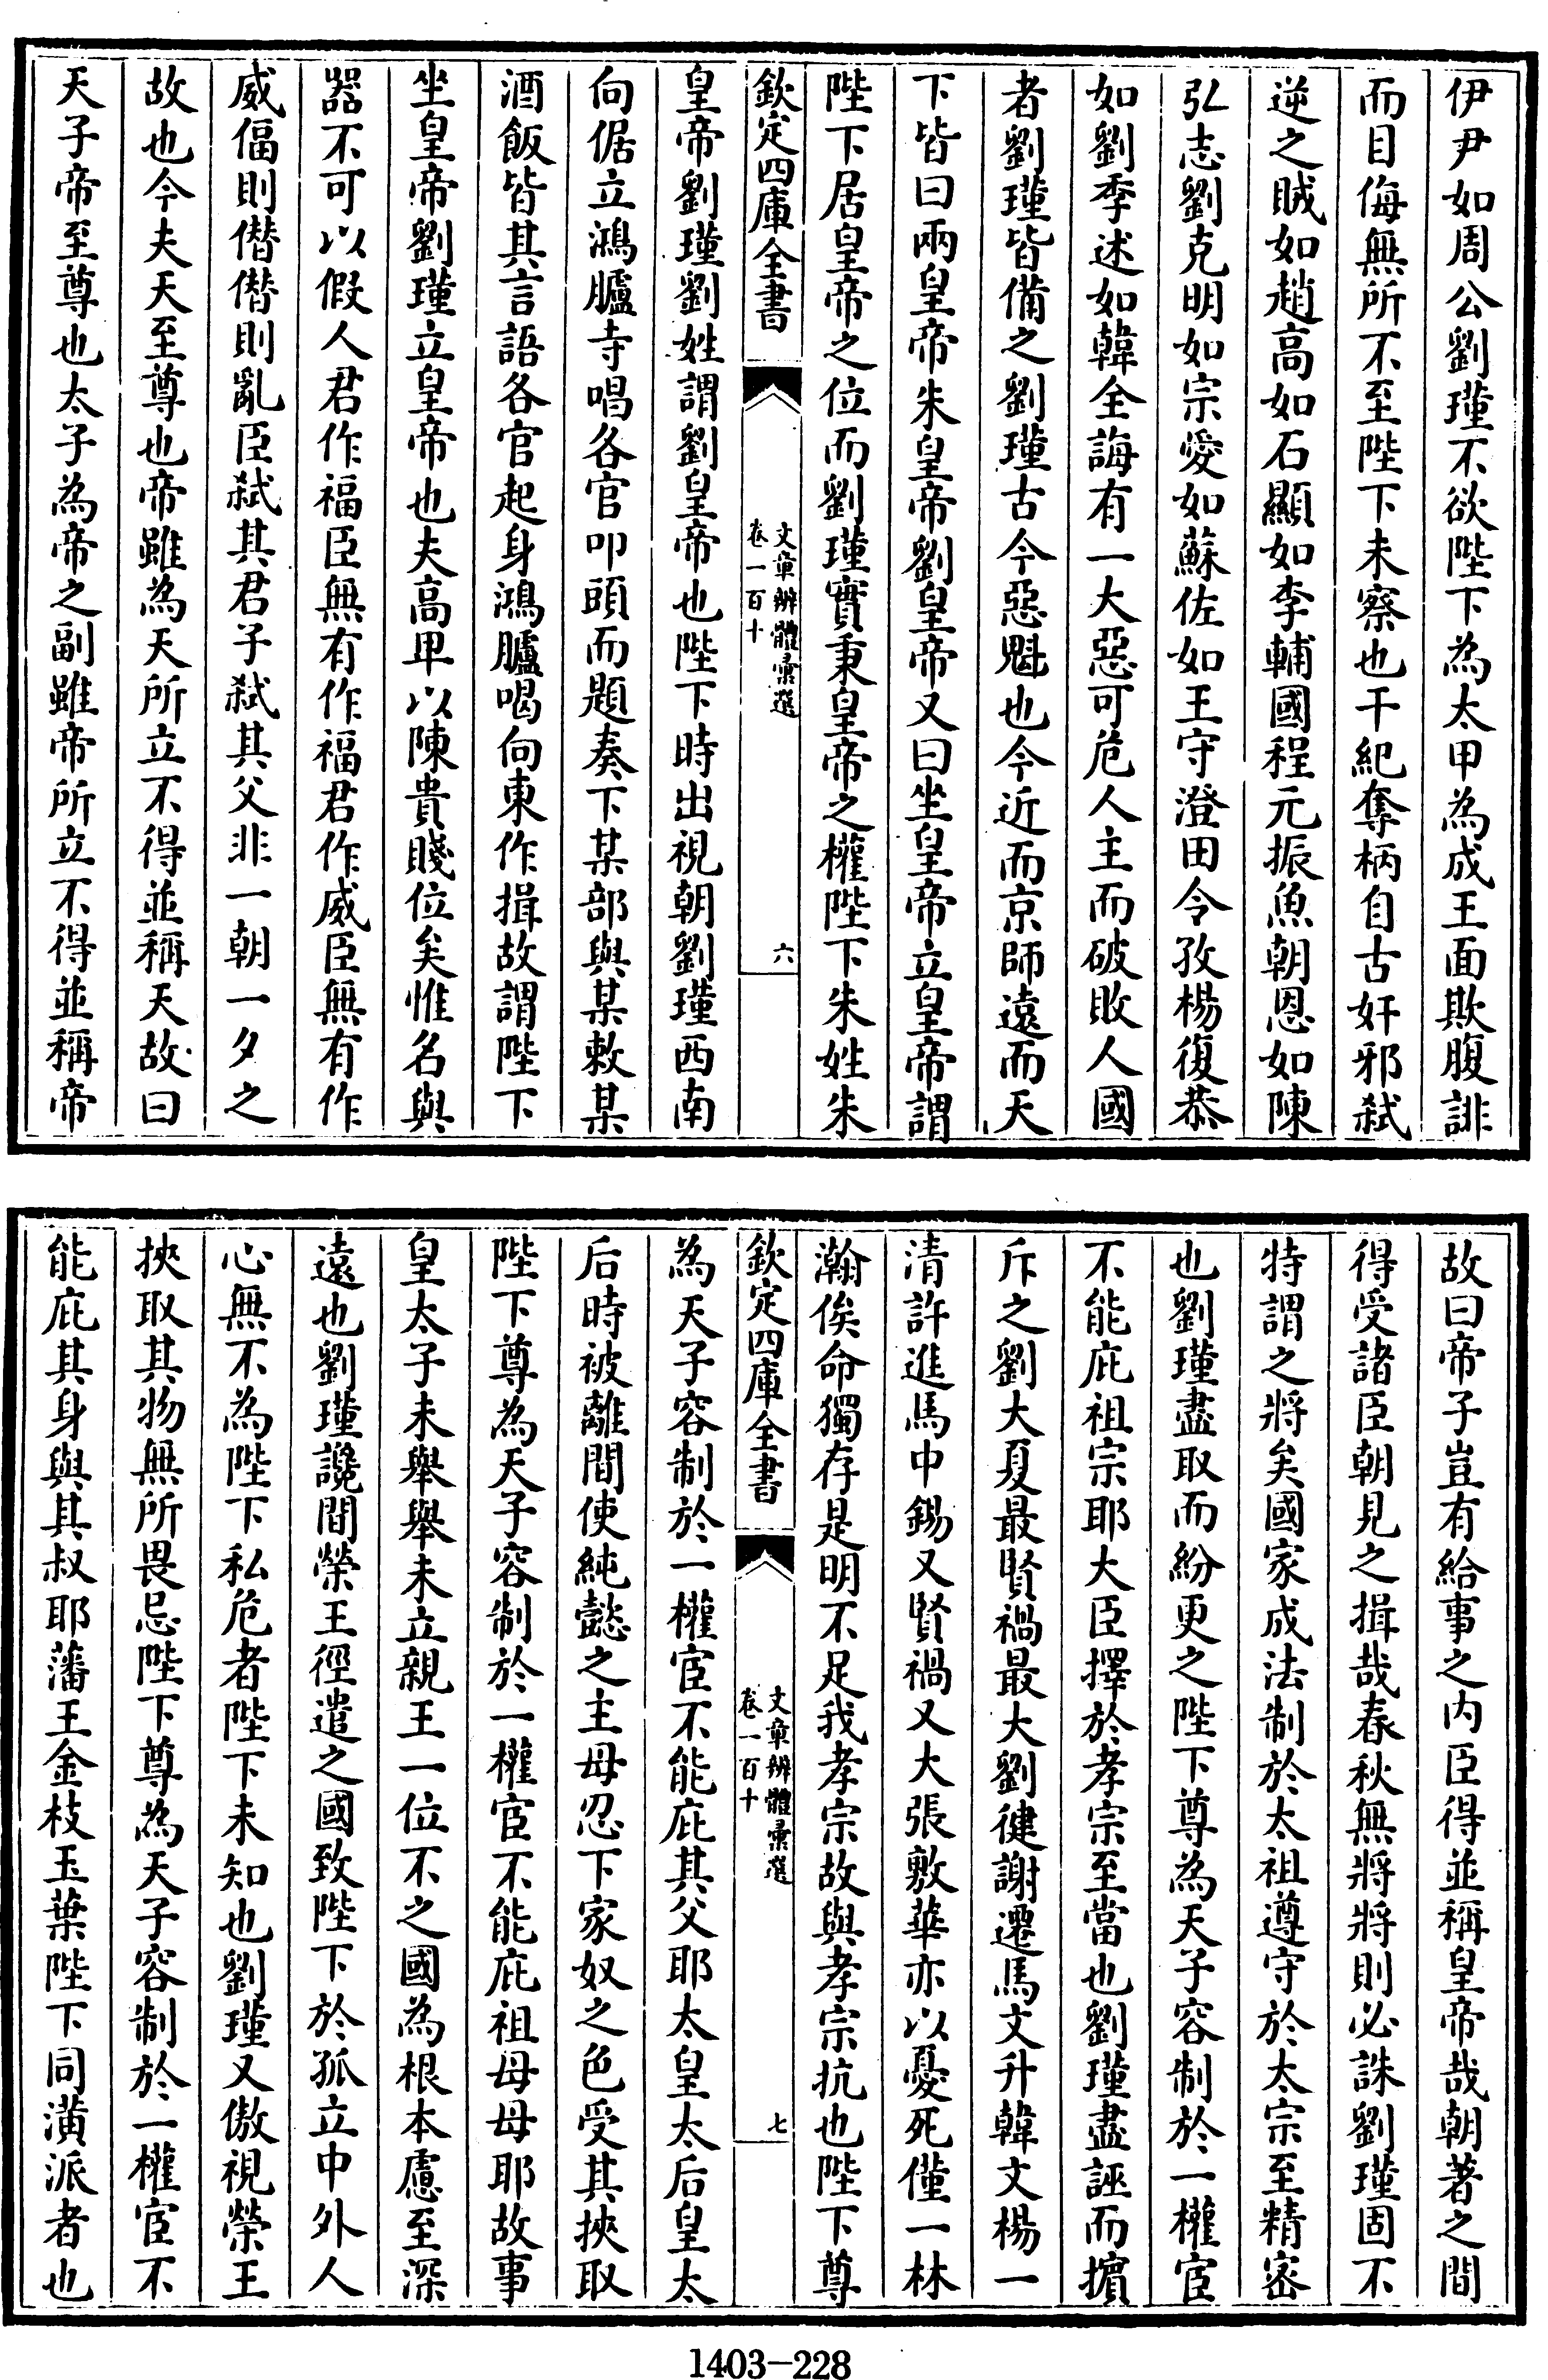 伊尹如周公劉瑾不欲陛下為太甲為成王面欺腹誹
而目侮無所不至陛下未察也干紀奪柄自古奸邪弒
逆之賊如趙高如石顯如李輔國程元振魚朝恩如陳
弘志劉克明如宗愛如蘇佐如王守澄田令孜楊復恭
如劉季述如韓全誨有一大惡可危人主而破敗人國
者劉瑾皆備之劉瑾古今惡魁也今近而京師遠而天
下皆曰兩皇帝朱皇帝劉皇帝又曰坐皇帝立皇帝謂
陛下居皇帝之位而劉瑾實秉皇帝之權陛下朱姓朱
欽定四庫全書
文章辨體彙選
卷一百十
六
皇帝劉瑾劉姓謂劉皇帝也陛下時出視朝劉瑾西南
向倨立鴻臚寺唱各官叩頭而題奏下某部與某敕某
酒飯皆其言語各官起身鴻臚喝向東作揖故謂陛下
坐皇帝劉瑾立皇帝也夫高卑以陳貴賤位矣惟名與
器不可以假人君作福臣無有作福君作威臣無有作
威偪則僭僭則亂臣弒其君子弒其父非一朝一夕之
故也今夫天至尊也帝雖為天所立不得並稱天故曰
天子帝至尊也太子為帝之副雖帝所立不得並稱帝
故曰帝子豈有給事之內臣得並稱皇帝哉朝著之間
得受諸臣朝見之揖哉春秋無將將則必誅劉瑾固不
特謂之將矣國家成法制於太祖遵守於太宗至精密
也劉瑾盡取而紛更之陛下尊為天子容制於一權宦
不能庇祖宗耶大臣擇於孝宗至當也劉瑾盡誣而擯
斥之劉大夏最賢禍最大劉健謝遷馬文升韓文楊一
清許進馬中錫又賢禍又大張敷華亦以憂死僅一林
瀚俟命獨存是明不足我孝宗故與孝宗抗也陛下尊
欽定四庫全書
文章辨體彙選
卷一百十
七
為天子容制於一權宦不能庇其父耶太皇太后皇太
后時被離間使純懿之主母忍下家奴之色受其挾取
陛下尊為天子容制於一權宦不能庇祖母母耶故事
皇太子未舉舉未立親王一位不之國為根本慮至深
遠也劉瑾讒間榮王徑遣之國致陛下於孤立中外人
心無不為陛下私危者陛下未知也劉瑾又傲視榮王
挾取其物無所畏忌陛下尊為天子容制於一權宦不
能庇其身與其叔耶藩王金枝玉葉陛下同潢派者也
1403-228